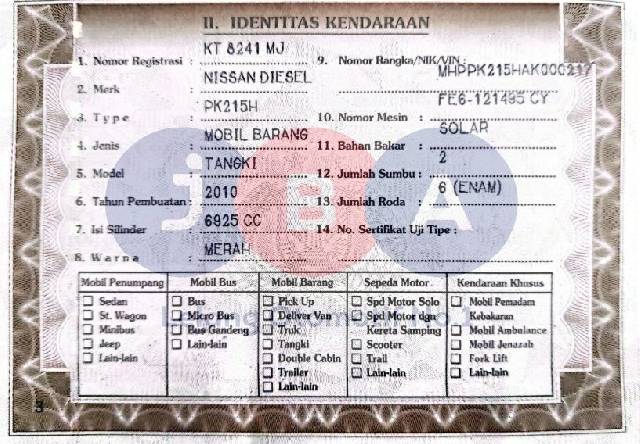 II. IDENTITAS KENDARAAN
1. Nomor Registrasi : KT 8241 MJ
2. Merk : NISSAN DIESEL
3. Type : PK215H
4. Jenis : MOBIL BARANG
5. Model : TANGKI
6. Tahun Pembuatan : 2010
7. Isi Silinder : 6925 CC
8. Warna : MERAH
9. Nomor Rangka/NIK/VIN : MHPPK215HAK000217
10. Nomor Mesin : FE6-121495 CY
11. Bahan Bakar : SOLAR
12. Jumlah Sumbu : 2
13. Jumlah Roda : 6 (ENAM)
14. No. Sertifikat Uji Tipe :
JBA
Mobil Penumpang
Sedan
St. Wagon
Minibus
Jeep
Lain-lain
Mobil Bus
Bus
Micro Bus
Bus Gandeng
Lain-lain
Mobil Barang
Pick Up
Deliver Van
Truk
Tangki
Double Cabin
Trailer
Lain-lain
Sepeda Motor
Spd Motor Solo
Spd Motor dgn
Kereta Samping
Scooter
Trail
Lain-lain
Kendaraan Khusus
Mobil Pemadam
Kebakaran
Mobil Ambulance
Mobil Jenazah
Fork Lift
Lain-lain
3